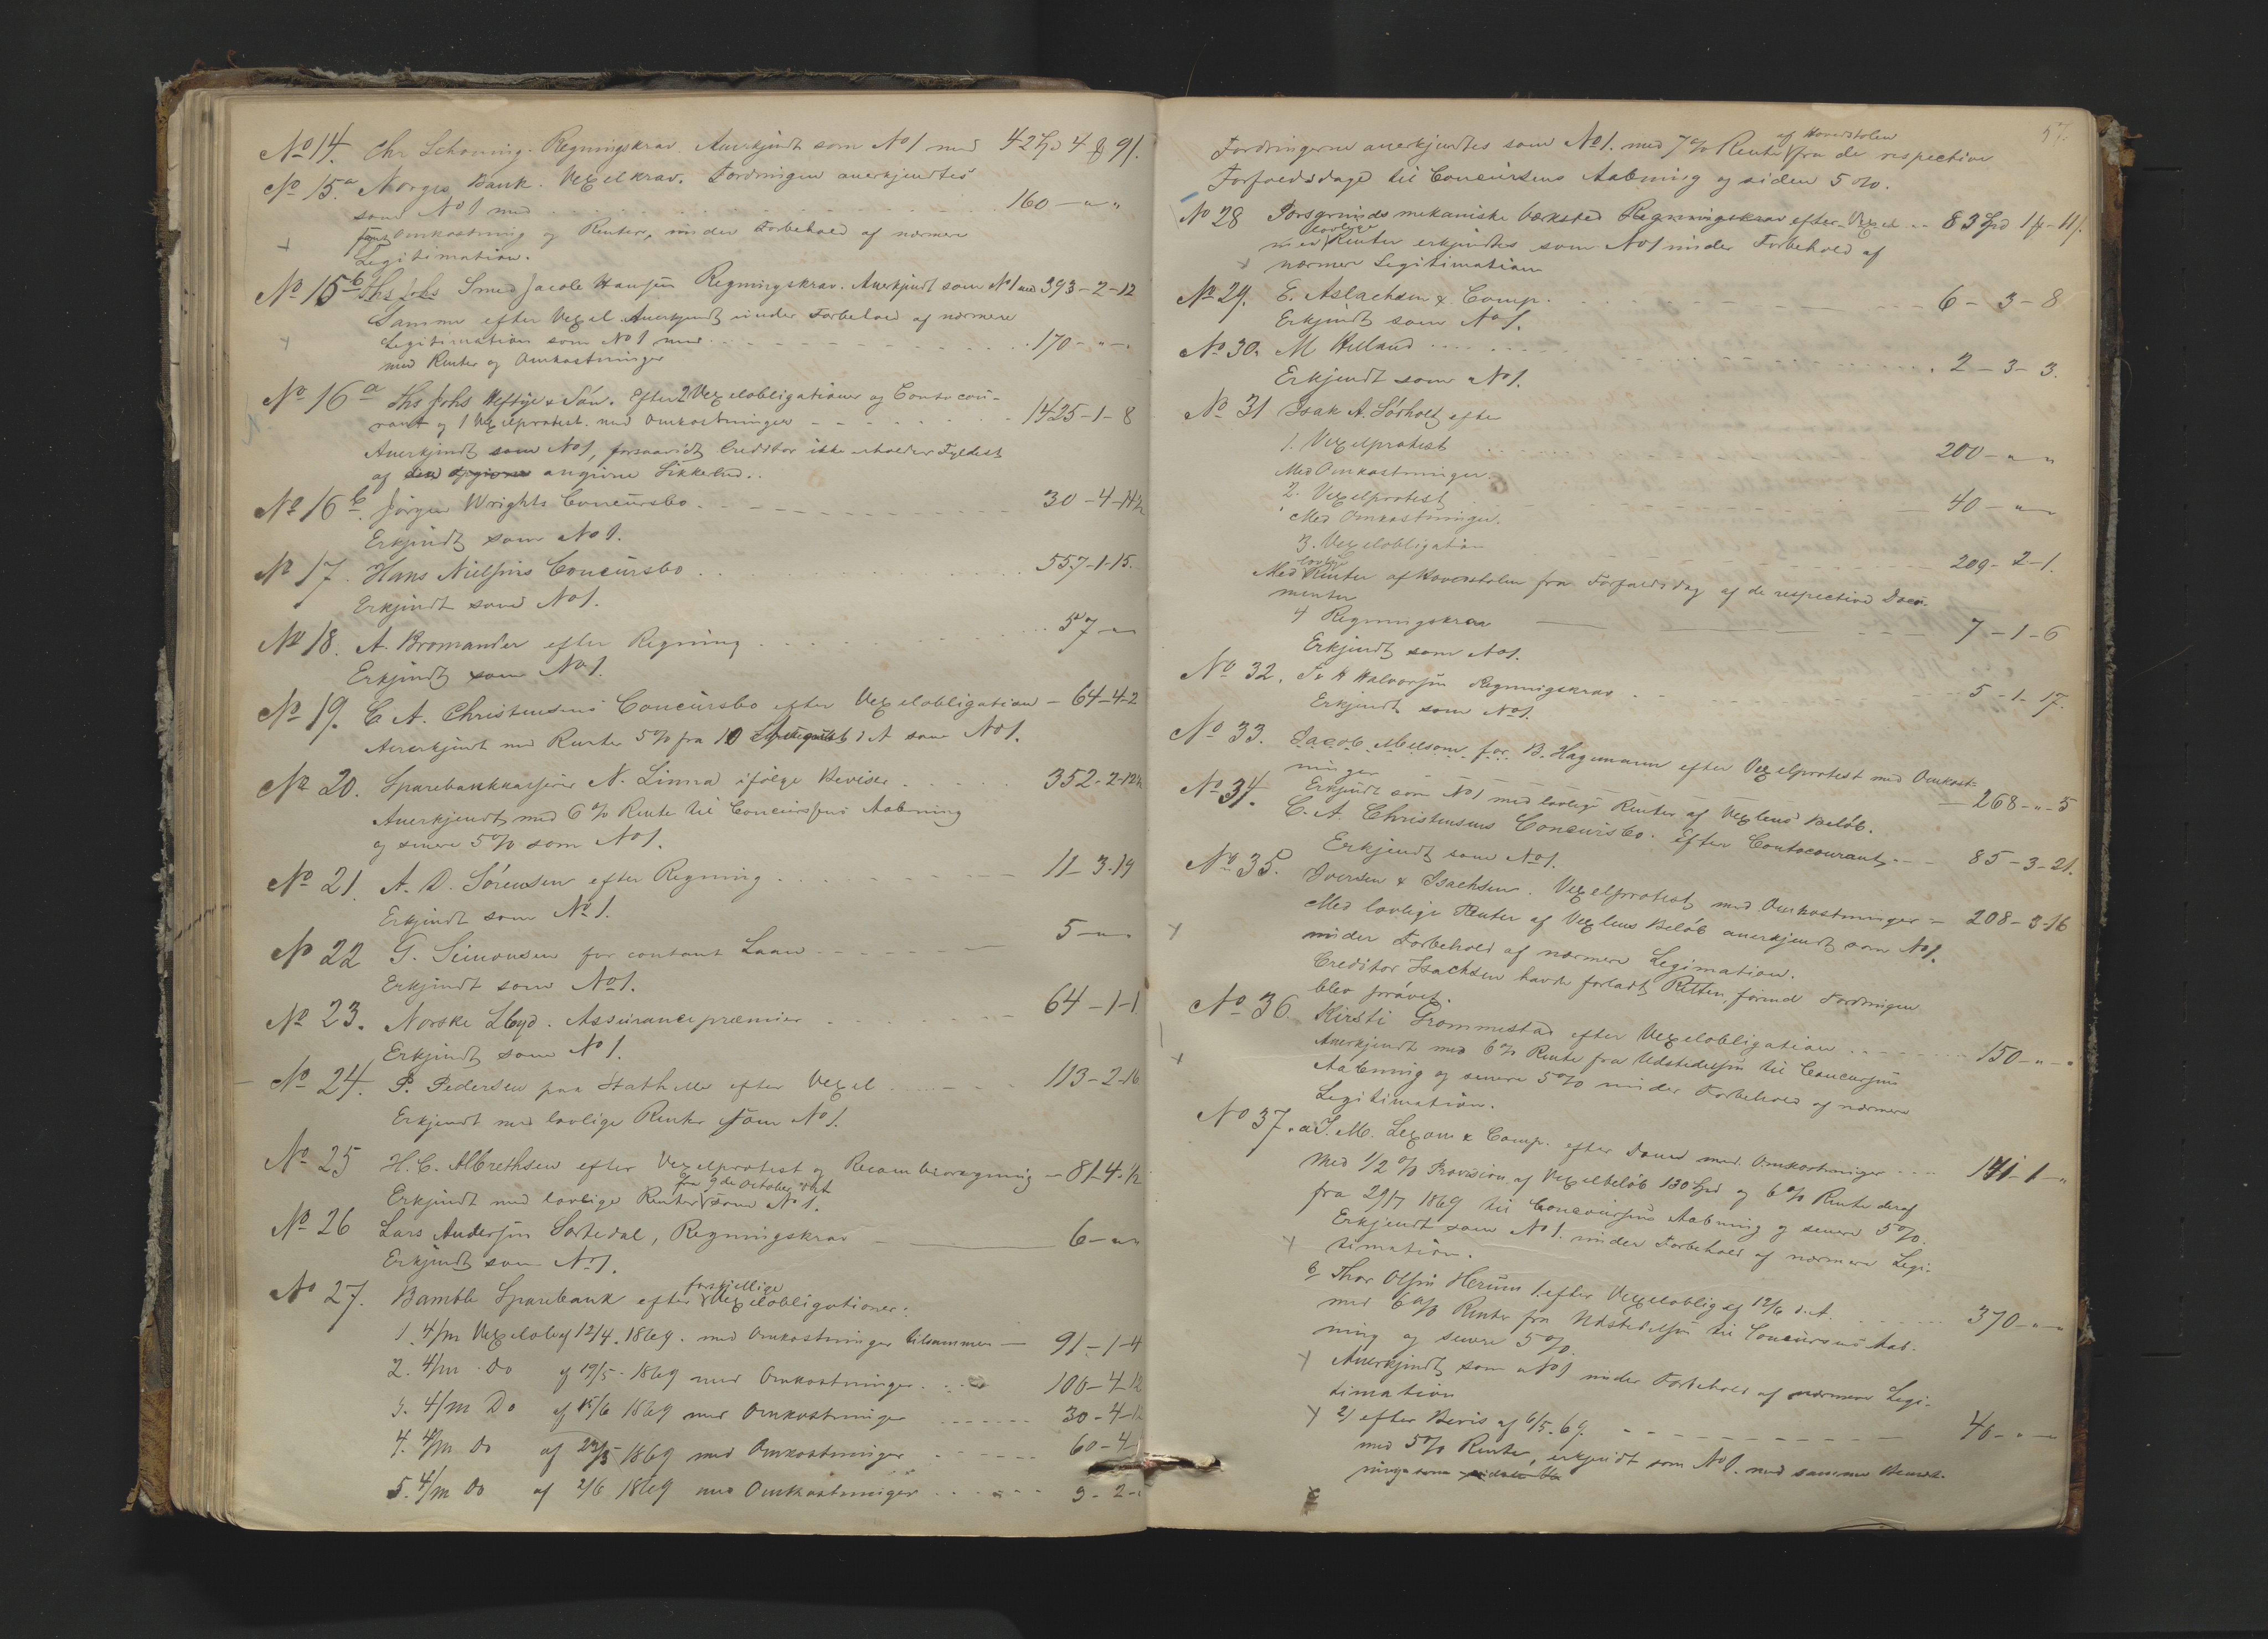 No 14. Chr Schouing. Regningskrav. Anerkjendt som No 1 med 42 Spd 4 ß 91.
No 15.a Norges Bank. Vexelkrav. Fordringen anerkjendtes
som No 1 med 160 – " – "
samt Omkostning og Renter, under Forbehold af nærmere
Legitimation.
No 15 b Smed Jacob Hansen Regningskrav. Anerkjendt som No 1 med 393 – 2 – 12
Samme efter Vexel Anerkjendt under Forbehold af nærmere
Legitimation som No 1 med 170 – " – "
med Renter og Omkostninger
No 16 a Ths Johs Heftye & Søn. Efter 2 Vexelobligationer og Contocou-
rant og 1 Vexelprotest med Omkostninger 1425 – 1 – 8
Anerkjendt som No 1, forsaavidt Creditor ikke erholder Fyldest
af den opgivne angivne Sikkerhed.
No 16 b. Jørgen Wrights Concursbo 30 – 4 –
Erkjendt som No 1.
No 17. Hans Nielsens Concursbo 557 – 1 – 15.
Erkjendt som No 1.
No 18. A. Bromander efter Regning 57 – " "
Erkjendt som No 1.
No 19. C. A. Christensens Concursbo efter Vexelobligation – 64 – 4 – 2
Anerkjendt med Renter 5 % fra 10 d. A som No 1.
No 20. Sparebankkasserer N. Linna ifølge Beviser 352 – 2 –
Anerkjendt med 6 % Rente til Concursens Aabning
og senere 5 % som No 1.
No 21. A. D. Sørensen efter Regning 11 – 3 – 19
Erkjendt som No 1.
No 22 G. Simonsen for contant Laan 5 – " – "
Erkjendt som No 1.
No 23. Norske Lloyd. Assurancepræmier 64 – 1 – 1
Erkjendt som No 1.
No 24. P. Pedersen paa Stathelle efter Vexel 113 – 2 – 16
Erkjendt med lovlige Renter som No 1.
No 25 H. C. Albrethsen efter Vexelprotest og Recambioregning – 81 – 4 –
fra 9de October
Erkjendt med lovlige Renter som No 1.
No 26 Lars Andersen Sortedal, Regningskrav 6 – " "
Erkjendt som No 1.
forskjellige
No 27. Bamble Sparebank efter Vexelobligationer:
1. 4/m Vexelobl af 12/4. 1869. med Omkostninger tilsammen – 91 – 1 – 4
2. 4/m Do af 19/5. 1869 med Omkostninger 100 – 4 – 12
3. 4/m Do af 15/6 1869 med Omkostninger 30 – 4 – 12
4. 4/m Do af 1869 med Omkostninger 60 – 4 –
5. 4/m Do af 2/6 1869 med Omkostninger 3 – 2 –
57.
af Hovedstolen
Fordringerne anerkjendtes som No 1. med 7 % Renter fra de respective
Forfaldsdage til Concursens Aabning og siden 5 %.
No 28 Porsgrunds mekaniske Værksted Regningskrav efter Vexel 83 Spd 1 ß – 11 ß.
lovlige
med Renter erkjendtes som No 1 under Forbehold af
nærmere Legitimation
No 29. E. Aslachsen & Comp. 6 – 3 – 8
Erkjendt som No 1.
No 30. M Helland 2 – 3 – 3.
Erkjendt som No 1.
No 31 Isak A. Sørholt efter
1. Vexelprotest 200 – " "
Med Omkostninger
2. Vexelprotest 40 – " –
Med Omkostninger.
3. Vexelobligation 209 – 2 – 1.
lovlige
Med Renter af Hovedstolen fra Forfaldsdag af de respective Docu-
menter
4 Regningskrav 7 – 1 – 6
Erkjendt som No 1.
No 32. H Halvorsen Regningskrav 5 – 1 – 17.
Erkjendt som No 1.
No 33. Jacob Melsom for B. Hagemann efter Vexelprotest med Omkost-
ninger 268 – " – 5
Erkjendt som No 1 med lovlige Renter af Vexlens Beløb.
No 34. C. A. Christensens Concursbo. Efter Contocourant 85 – 3 – 21.
Erkjendt som No 1.
No 35. Iversen & Isachsen. Vexelprotest med Omkostninger – 208 – 3 – 16
Med lovlige Renter af Vexlens Beløb anerkjendt som No 1.
under Forbehold af nærmere Legimation.
Creditor Isachsen havde forladt Retten førend Fordringen
blev prøvet.
No 36 Kirsti Grommestad efter Vexelobligation 150 – " – "
Anerkjendt med 6 % Rente fra Udstedelsen til Concursens
Aabning og senere 5 % under Forbehold af nærmere
Legitimation.
No 37. a J. M. Lexow & Comp. efter Dom med Omkostninger 141 – 1 – "
Med 1/2 % Provision af Vexelbeløb 130 Spd og 6 % Rente deraf
fra 29/7 1869 til Concursens Aabning og senere 5 %.
Erkjendt som No 1. under Forbehold af nærmere Legi-
timation.
b Thor Olsen Herum 1. efter Vexeloblig af 12/6 d. A. 370 – " –
med 6 % Renter fra Udstedelsen til Concursens Aab-
ning og senere 5 %.
Anerkjendt som No 1 under Forbehold af nærmere Legi-
timation
2) efter Bevis af 6/5. 69. 40 – " –
med 5 % Renter, erkjendt som No 1. med samme Bemærk-
ning som